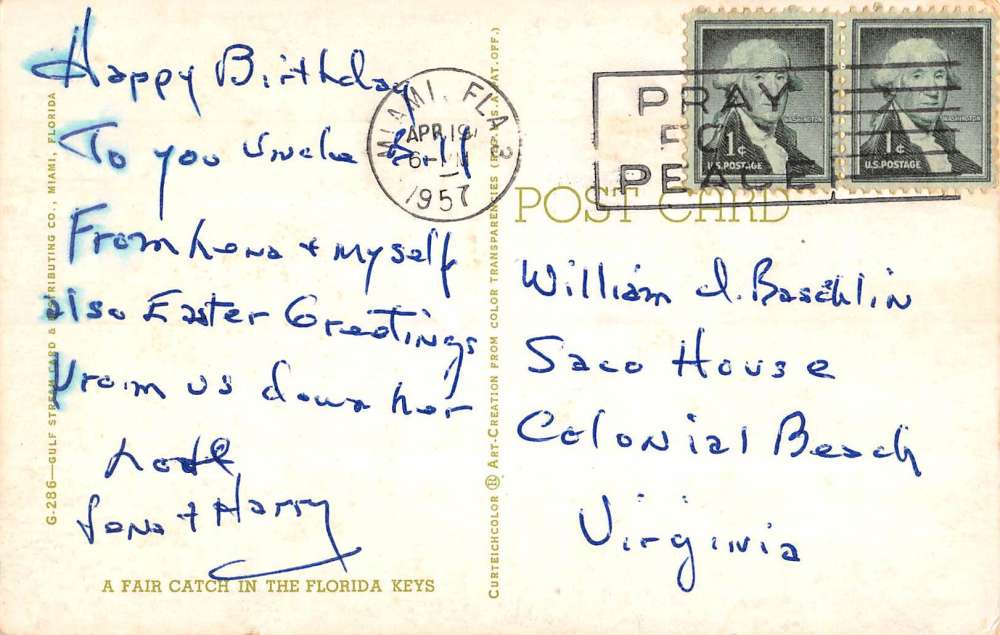 Happy Birthday
To you Uncle Bill
From Lena + Myself
also Easter Greetings
from us down her
Lena + Harry
A FAIR CATCH IN THE FLORIDA KEYS
G-286—GULF STREAM CARD & DISTRIBUTING CO., MIAMI, FLORIDA
CURTEICHCOLOR ® ART-CREATION FROM COLOR TRANSPARENCIES (REG. U.S.A. PAT. OFF.)
MIAMI, FLA.
APR 19
1957
PRAY
FOR
PEACE
1¢
WASHINGTON
U.S. POSTAGE
1¢
WASHINGTON
U.S. POSTAGE
POST CARD
William J. Baschlin
Saco House
Colonial Beach
Virginia